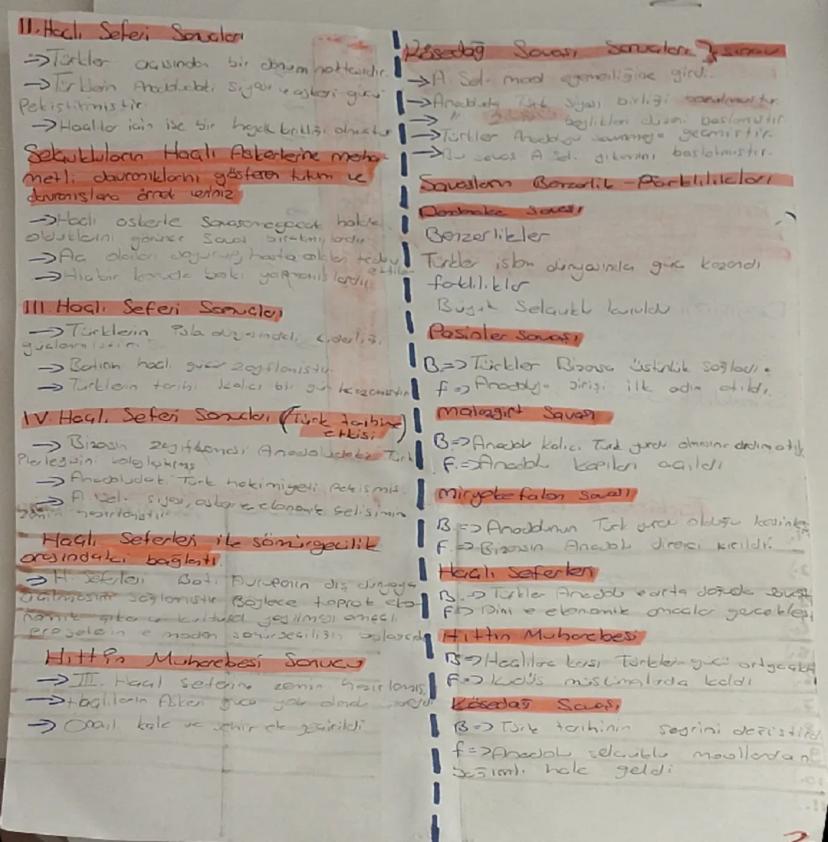 II. Haçlı Seferi Sonuçları
→ Türkler açısından bir dönüm noktasıdır.
→ Türklerin Anadoludaki siyasi ve askeri gücü
Pekiştirmiştir
→ Haçlılar için ise bir hayal kırıklığı olmuştur
Selçukluların Haçlı Askerlerine merha-
metli davrandıklarını gösteren tutum ve
davranışlara örnek veriniz
→ Haçlı askerle savaşamayacak halde
olduklarını görünce savaşı bırakmışlardır
→ Aç olanları doyurup, hasta olanları tedavi
ettiler
→ Hiçbir konuda baskı yapmamışlardır
III. Haçlı Seferi Sonuçları
→ Türklerin İslam dünyasındaki liderliği
→ Batının haçlı gücü zayıflamıştır
→ Türklerin tarihi kalıcı bir güç kazanmıştır
IV. Haçlı Seferi Sonuçları (Türk tarihine
etkisi)
→ Bizansın zayıflaması Anadoludaki Türk
→ Anadoludaki Türk hakimiyeti pekişmiş
→ A. Sel. siyasi, askeri, ekonomik gelişimine
zemin hazırlamıştır
Haçlı Seferleri ile sömürgecilik
arasındaki bağlantı
→ H. Seferleri Batı Avrupanın dış dünyaya
açılmasını sağlamıştır Böylece toprak eko
nomik çıkar ve kültürel yayılması amacı
projelerin e modern sömürgeciliğin başlangıcı
Hittin Muharebesi Sonucu
→ III. Haçlı Seferine zemin hazırlamış
→ Haçlıların Askeri gücü yok olmak
→ Onail kale ve şehir ele geçirildi
Kösedağ Savaşı Sonuçları } sınav
→ A. Sel. mool egemenliğine girdi.
→ Anadoluda Türk siyasi birliği bozulmuştur
→ " beylikleri dönemi başlamıştır
→ Türkler Anadoluyu savunmaya geçmiştir.
→ Bu savaş A. Sel. yıkımını başlatmıştır.
Savaşların Benzerlik - Farklılıkları
Dandanake Savaşı
Benzerlikler
Türkler islam dünyasında güç kazandı
farklılıklar
Büyük Selçuklu kuruldu
Pasinler Savaşı
B => Türkler Bizansa üstünlük sağladı.
f => Anadoluya girişi ilk adım atıldı.
malazgirt Savaşı
B => Anadolu kalıcı Türk yurdu olmasına
f. => Anadolu kapıları açıldı
miryokefalon savaşı
B => Anadolunun Türk yurdu olduğu kesinleş
F. => Bizansın Anadolu direnci kırıldı.
Haçlı Seferleri
B. => Türkler Anadolu e orta doğuda savaş
f => Dini e ekonomik amaçlar gerçekleş
Hittin Muharebesi
B => Haçlılara karşı Türklerin gücü
F => kudüs müslümalarda kaldı
Kösedağ Savaşı
B => Türk tarihinin seyrini değiştirdi
f => Anadolu selçuklu moollardan
bağımlı hale geldi